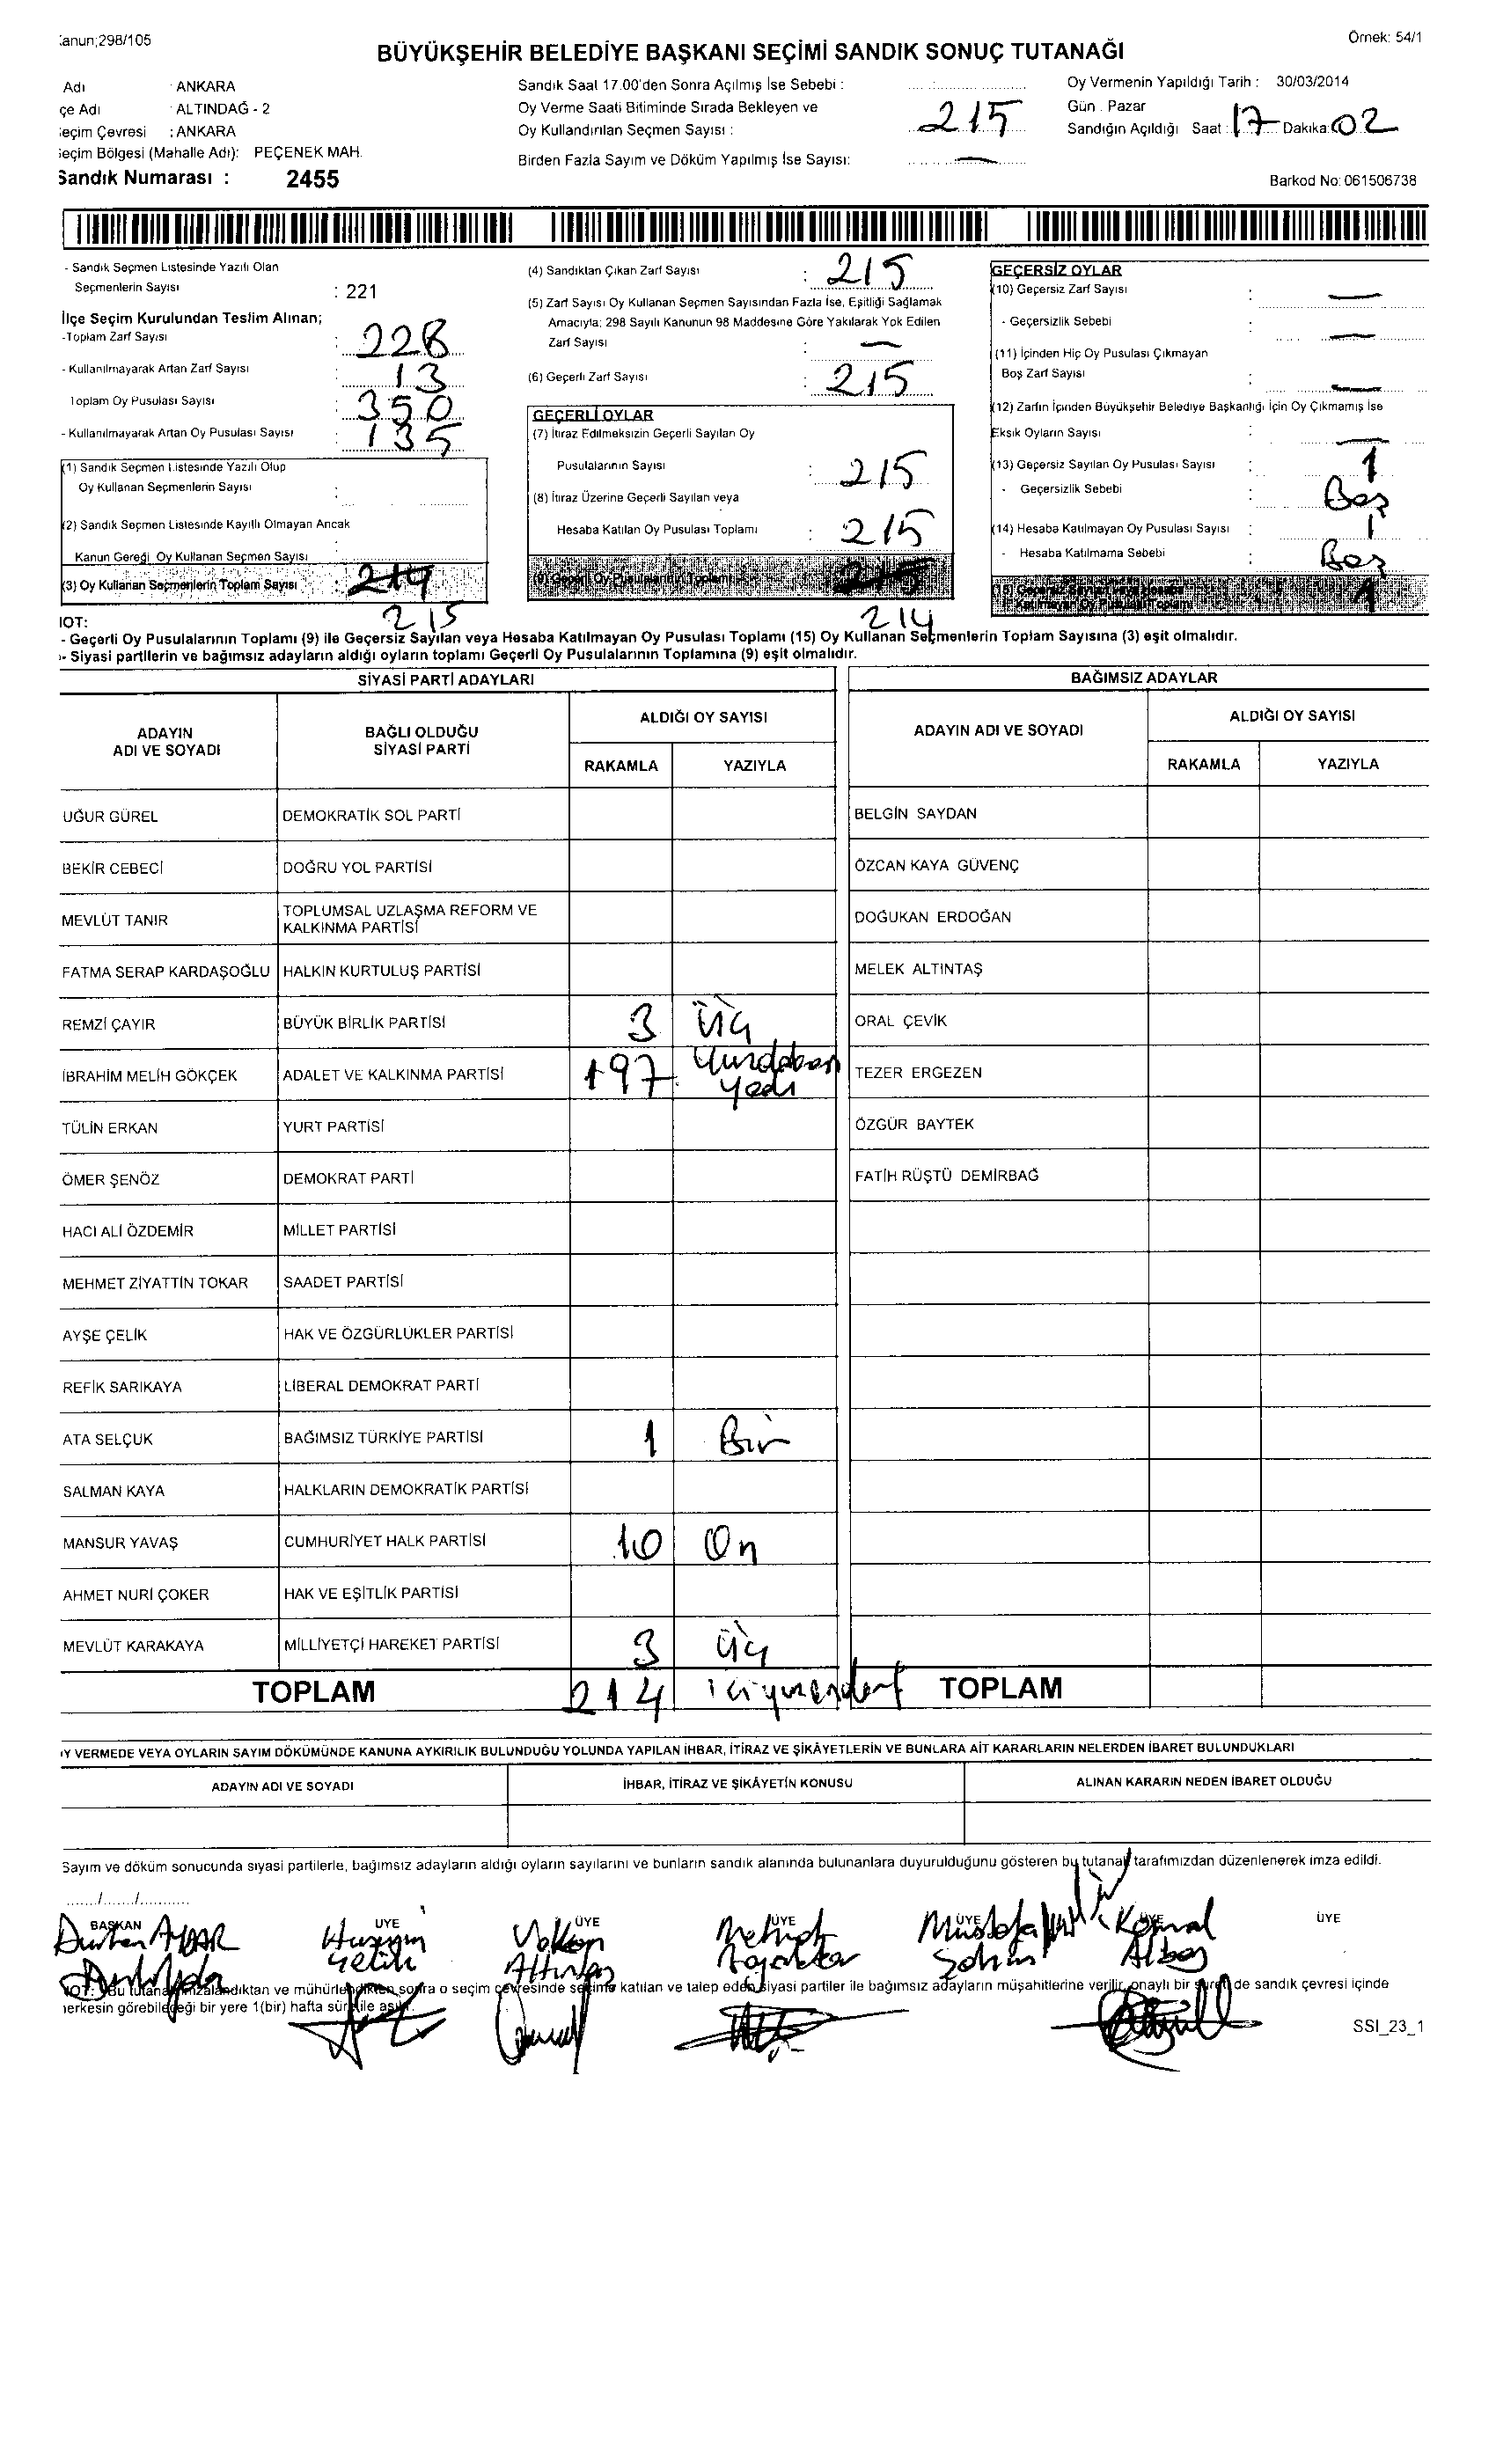 Kanun;298/105
Örnek: 54/1
BÜYÜKŞEHİR BELEDİYE BAŞKANI SEÇİMİ SANDIK SONUÇ TUTANAĞI
Adı : ANKARA
çe Adı ALTINDAĞ - 2
eçim Çevresi : ANKARA
eçim Bölgesi (Mahalle Adı): PEÇENEK MAH.
Sandık Numarası : 2455
Sandık Saat 17.00'den Sonra Açılmış İse Sebebi :
Oy Verme Saati Bitiminde Sırada Bekleyen ve
Oy Kullandırılan Seçmen Sayısı : 215
Birden Fazla Sayım ve Döküm Yapılmış İse Sayısı: —
Oy Vermenin Yapıldığı Tarih : 30/03/2014
Gün : Pazar
Sandığın Açıldığı Saat : 17 Dakika: 02
Barkod No: 061506738
- Sandık Seçmen Listesinde Yazılı Olan
Seçmenlerin Sayısı : 221
İlçe Seçim Kurulundan Teslim Alınan;
-Toplam Zarf Sayısı : 228
- Kullanılmayarak Artan Zarf Sayısı : 13
Toplam Oy Pusulası Sayısı : 350
- Kullanılmayarak Artan Oy Pusulası Sayısı : 135
(1) Sandık Seçmen Listesinde Yazılı Olup
Oy Kullanan Seçmenlerin Sayısı :
(2) Sandık Seçmen Listesinde Kayıtlı Olmayan Ancak
Kanun Gereği Oy Kullanan Seçmen Sayısı :
(3) Oy Kullanan Seçmenlerin Toplam Sayısı : 214
215
(4) Sandıktan Çıkan Zarf Sayısı : 215
(5) Zarf Sayısı Oy Kullanan Seçmen Sayısından Fazla İse, Eşitliği Sağlamak
Amacıyla; 298 Sayılı Kanunun 98 Maddesine Göre Yakılarak Yok Edilen
Zarf Sayısı : —
(6) Geçerli Zarf Sayısı : 215
GEÇERLİ OYLAR
(7) İtiraz Edilmeksizin Geçerli Sayılan Oy
Pusulalarının Sayısı : 215
(8) İtiraz Üzerine Geçerli Sayılan veya
Hesaba Katılan Oy Pusulası Toplamı : 215
(9) Geçerli Oy Pusulalarının Toplamı 215
214
GEÇERSİZ OYLAR
(10) Geçersiz Zarf Sayısı : —
- Geçersizlik Sebebi : —
(11) İçinden Hiç Oy Pusulası Çıkmayan
Boş Zarf Sayısı : —
(12) Zarfın İçinden Büyükşehir Belediye Başkanlığı İçin Oy Çıkmamış İse
Eksik Oyların Sayısı : —
(13) Geçersiz Sayılan Oy Pusulası Sayısı : 1
- Geçersizlik Sebebi : Boş
(14) Hesaba Katılmayan Oy Pusulası Sayısı : 1
- Hesaba Katılmama Sebebi : Boş
(15) Geçersiz Sayılan veya Hesaba
Katılmayan Oy Pusulası Toplamı 1
NOT:
- Geçerli Oy Pusulalarının Toplamı (9) ile Geçersiz Sayılan veya Hesaba Katılmayan Oy Pusulası Toplamı (15) Oy Kullanan Seçmenlerin Toplam Sayısına (3) eşit olmalıdır.
- Siyasi partilerin ve bağımsız adayların aldığı oyların toplamı Geçerli Oy Pusulalarının Toplamına (9) eşit olmalıdır.
SİYASİ PARTİ ADAYLARI
BAĞIMSIZ ADAYLAR
ADAYIN ADI VE SOYADI
BAĞLI OLDUĞU SİYASİ PARTİ
ALDIĞI OY SAYISI
RAKAMLA YAZIYLA
ADAYIN ADI VE SOYADI
ALDIĞI OY SAYISI
RAKAMLA YAZIYLA
UĞUR GÜREL DEMOKRATİK SOL PARTİ BELGİN SAYDAN
BEKİR CEBECİ DOĞRU YOL PARTİSİ ÖZCAN KAYA GÜVENÇ
MEVLÜT TANIR TOPLUMSAL UZLAŞMA REFORM VE KALKINMA PARTİSİ DOĞUKAN ERDOĞAN
FATMA SERAP KARDAŞOĞLU HALKIN KURTULUŞ PARTİSİ MELEK ALTINTAŞ
REMZİ ÇAYIR BÜYÜK BİRLİK PARTİSİ 3 üç ORAL ÇEVİK
İBRAHİM MELİH GÖKÇEK ADALET VE KALKINMA PARTİSİ 197 Yüzdoksan yedi TEZER ERGEZEN
TÜLİN ERKAN YURT PARTİSİ ÖZGÜR BAYTEK
ÖMER ŞENÖZ DEMOKRAT PARTİ FATİH RÜŞTÜ DEMİRBAĞ
HACI ALİ ÖZDEMİR MİLLET PARTİSİ
MEHMET ZİYATTİN TOKAR SAADET PARTİSİ
AYŞE ÇELİK HAK VE ÖZGÜRLÜKLER PARTİSİ
REFİK SARIKAYA LİBERAL DEMOKRAT PARTİ
ATA SELÇUK BAĞIMSIZ TÜRKİYE PARTİSİ 1 Bir
SALMAN KAYA HALKLARIN DEMOKRATİK PARTİSİ
MANSUR YAVAŞ CUMHURİYET HALK PARTİSİ 10 On
AHMET NURİ ÇOKER HAK VE EŞİTLİK PARTİSİ
MEVLÜT KARAKAYA MİLLİYETÇİ HAREKET PARTİSİ 3 üç
TOPLAM 214 TOPLAM
OY VERMEDE VEYA OYLARIN SAYIM DÖKÜMÜNDE KANUNA AYKIRILIK BULUNDUĞU YOLUNDA YAPILAN İHBAR, İTİRAZ VE ŞİKÂYETLERİN VE BUNLARA AİT KARARLARIN NELERDEN İBARET BULUNDUKLARI
ADAYIN ADI VE SOYADI İHBAR, İTİRAZ VE ŞİKÂYETİN KONUSU ALINAN KARARIN NEDEN İBARET OLDUĞU
Sayım ve döküm sonucunda siyasi partilerle, bağımsız adayların aldığı oyların sayılarını ve bunların sandık alanında bulunanlara duyurulduğunu gösteren bu tutanak tarafımızdan düzenlenerek imza edildi.
....../....../..........
BAŞKAN ÜYE ÜYE ÜYE ÜYE ÜYE ÜYE
Hüseyin Volkan Mehmet Mustafa Kemal
Çetin Altıntaş Şahin Albaş
NOT: Bu tutanak imzalandıktan ve mühürlendikten sonra o seçim çevresinde seçime katılan ve talep eden siyasi partiler ile bağımsız adayların müşahitlerine verilir, onaylı bir sureti de sandık çevresi içinde
herkesin görebileceği bir yere 1(bir) hafta süre ile asılır.
SSI_23_1